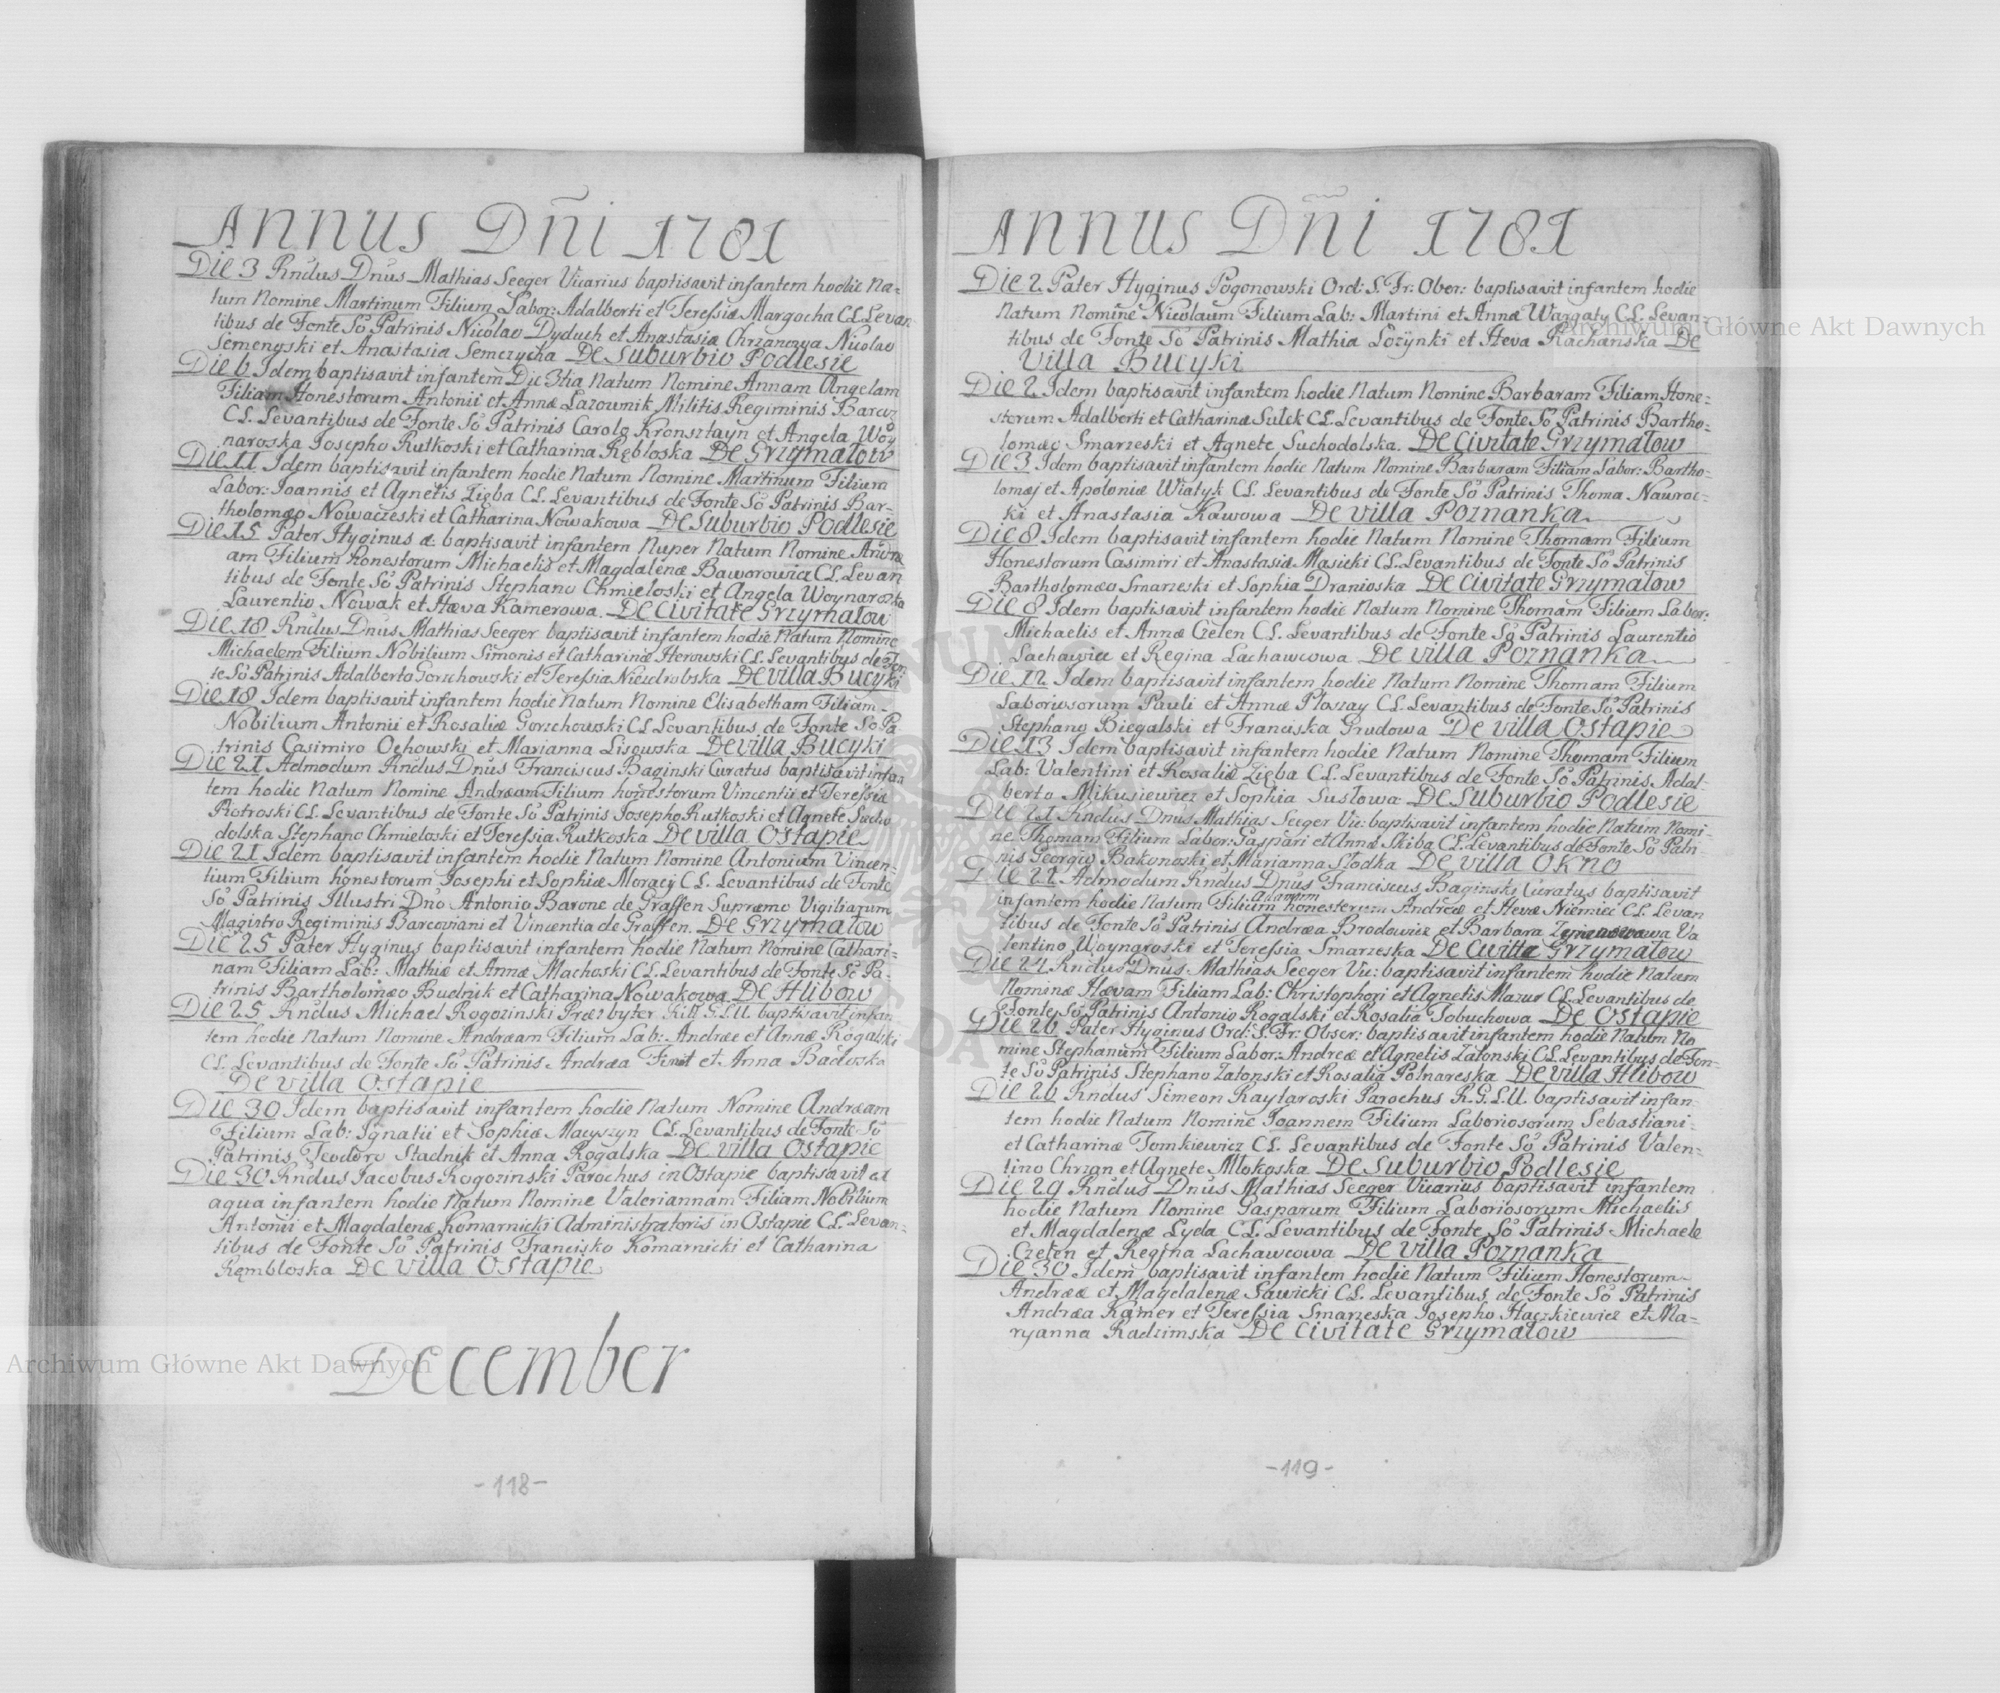 Annus Dñi 1781
Die 3 Rndus Dnus Mathias Seeger Vicarius baptisavit infantem hodie Na=
tum Nomine Martinum Filium Labor: Adalberti et Teressiæ Margocha CL Levan
tibus de Fonte So Patrinis Nicolao Dyduch et Anastasia Chrzanczya Nicolao
Semenyski et Anastasia Semczycha De Suburbio Podlesie
Die 6 Idem baptisavit infantem Die 3tia Natum Nomine Annam Angelam
Filiam Honestorum Antonii et Annæ Lazownik Militis Regiminis Barcz
CL Levantibus de Fonte So Patrinis Carolo Kronsztayn et Angela Woy
naroska Josepho Rutkoski et Catharina Rębloska De Grzymałow
Die 11 Idem baptisavit infantem hodie Natum Nomine Martinum Filium
Labor: Joannis et Agnetis Zięba CL Levantibus de Fonte So Patrinis Bar-
tholomæo Nowaczeski et Catharina Nowakowa De Suburbio Podlesie
Die 15 Pater Hyginus a baptisavit infantem Nuper Natum Nomine Andre
am Filium Honestorum Michaelis et Magdalenæ Baworowicz CL Levan
tibus de Fonte So Patrinis Stephano Chmieloski et Angela Woynaroska
Laurentio Nowak et Hæva Kamerowa. De Civitate Grzymałow
Die 18 Rndus Dnus Mathias Seeger baptisavit infantem hodie Natum Nomine
Michaelem Filium Nobilium Simonis et Catharinæ Herowski CL Levantibus de Fon
te So Patrinis Adalberto Gorschowski et Teressia Niezdrobska De villa Bucyki
Die 18 Idem baptisavit infantem hodie Natum Nomine Elisabetham Filiam
Nobilium Antonii et Rosaliæ Gorzchowski CL Levantibus de Fonte So Pa
trinis Casimiro Ochowski et Marianna Lisowska De villa Bucyki
Die 21 Admodum Rndus Dnus Franciscus Baginski Curatus baptisavit infan
tem hodie Natum Nomine Andream Filium honestorum Vincentii et Teressiæ
Piotroski CL Levantibus de Fonte So Patrinis Josepho Rutkoski et Agnete Sucho
dolska Stephano Chmieloski et Teressia Rutkoska De villa Ostapie
Die 21 Idem baptisavit infantem hodie Natum Nomine Antonium Vincen-
tium Filium honestorum Josephi et Sophiæ Moracij CL. Levantibus de Fonte
So Patrinis Illustri Dno Antonio Barone de Graffen Supremo Vigiliarum
Magistro Regiminis Barcoviani et Vincentia de Graffen. De Grzymałow
Die 25 Pater Hyginus baptisavit infantem hodie Natum Nomine Cathari-
nam Filiam Lab: Mathiæ et Annæ Machoski CL Levantibus de Fonte So Pa-
trinis Bartholomæo Budnik et Catharina Nowakowa De Hlibow
Die 25 Rndus Michael Rogozinski Præsbyter Rit: G.L.U. baptisavit infan
tem hodie Natum Nomine Andræam Filium Lab: Andreæ et Annæ Rogalski
CL Levantibus de Fonte So Patrinis Andræa et Anna Bacloska
De villa Ostapie
Die 30 Idem baptisavit infantem hodie Natum Nomine Andræam
Filium Lab: Ignatii et Sophiæ Macyszyn CL Levantibus de Fonte So
Patrinis Teodoro Stadnik et Anna Rogalska De villa Ostapie
Die 30 Rndus Jacobus Rogozinski Parochus in Ostapie baptisavit ex
aqua infantem hodie Natum Nomine Valeriannam Filiam Nobilium
Antonii et Magdalenæ Komarnicki Administratoris in Ostapie CL Levan=
tibus de Fonte So Patrinis Francisko Komarnicki et Catharina
Rembloska De villa Ostapie
December
-118-
Annus Dñi 1781
Die 2 Pater Hyginus Pogonowski Ord: S. Fr: Ober: baptisavit infantem hodie
Natum Nomine Nicolaum Filium Lab: Martini et Annæ Wargaty CL. Levan
tibus de Fonte So Patrinis Mathia Lozynki et Heva Rachanska De
Villa Bucyki
Die 2 Idem baptisavit infantem hodie Natum Nomine Barbaram Filiam Hone=
storum Adalberti et Catharinæ Sulek CL Levantibus de Fonte So Patrinis Bartho=
lomæo Smarzeski et Agnete Suchodolska. De Civitate Grzymałow
Die 3 Idem baptisavit infantem hodie Natum Nomine Barbaram Filiam Labor: Bartho=
lomæj et Apoloniæ Wiatyk CL Levantibus de Fonte So Patrinis Thoma Nawroc=
ki et Anastasia Kawowa De villa Poznanka
Die 8 Idem baptisavit infantem hodie Natum Nomine Thomam Filium
Honestorum Casimiri et Anastasiæ Masicki CL Levantibus de Fonte So Patrinis
Bartholomæo Smarzeski et Sophia Dranioska De Civitate Grzymałow
Die 8 Idem baptisavit infantem hodie Natum Nomine Thomam Filium Labor:
Michaelis et Annæ Czelen CL Levantibus de Fonte So Patrinis Laurentio
Lachawiec et Regina Lachawcowa De villa Poznanka
Die 12 Idem baptisavit infantem hodie Natum Nomine Thomam Filium
Laboriosorum Pauli et Annæ Płaszay CL Levantibus de Fonte So Patrinis
Stephano Biegalski et Franciska Prudowa De villa Ostapie
Die 13 Idem baptisavit infantem hodie Natum Nomine Thomam Filium
Lab: Valentini et Rosaliæ Zięba CL Levantibus de Fonte So Patrinis Adal-
berto Mikusiewicz et Sophia Susłowa De Suburbio Podlesie
Die 21 Rndus Dnus Mathias Seeger Vic: baptisavit infantem hodie Natum Nomi-
ne Thomam Filium Labor: Gaspari et Annæ Skiba CL Levantibus de Fonte So Patri-
nis Georgio Bakonoski et Marianna Słodka De villa Okno
Die 22 Admodum Rndus Dnus Franciscus Baginski Curatus baptisavit
infantem hodie Natum Filium Adamum honestorum Andreæ et Hevæ Niemiec CL Levan
tibus de Fonte So Patrinis Andræa Brodowicz et Barbara Va
lentino Woyngroski et Teressia Smarzeska De Civitte Grzymałow
Die 24 Rndus Dnus Mathias Seeger Vic: baptisavit infantem hodie Natum
Nominæ Hævam Filiam Lab: Christophori et Agnetis Mazur CL Levantibus de
Fonte So Patrinis Antonio Rogalski et Rosalia Sobuchowa De Ostapie
Die 26 Pater Hyginus Ord: S. Fr: Obser: baptisavit infantem hodie Natum No
mine Stephanum Filium Labor: Andreæ et Agnetis Zatonski CL Levantibus de Fon-
te So Patrinis Stephano Zatonski et Rosalia Polnareska De villa Hlibow
Die 26 Rndus Simeon Raytaroski Parochus R.G.L.U. baptisavit infan-
tem hodie Natum Nomine Joannem Filium Laboriosorum Sebastiani-
et Catharinæ Tomkiewicz CL Levantibus de Fonte So Patrinis Valen=
tino Chrzan et Agnete Mlokoska De Suburbio Podlesie
Die 29 Rndus Dnus Mathias Seeger Vicarius baptisavit infantem
hodie Natum Nomine Gasparum Filium Laboriosorum Michaelis
et Magdalenæ Lyda CL Levantibus de Fonte So Patrinis Michaele
Czelen et Regina Lachawcowa De villa Poznanka
Die 30 Idem baptisavit infantem hodie Natum Filium Honestorum
Andreæ et Magdalenæ Sawicki CL. Levantibus de Fonte So Patrinis
Andræa Kamer et Teressia Smarzeska Josepho Haczkiewicz et Ma=
ryanna Radzimska De Civitate Grzymałow
-119-
Archiwum Główne Akt Dawnych
Archiwum Główne Akt Dawnych